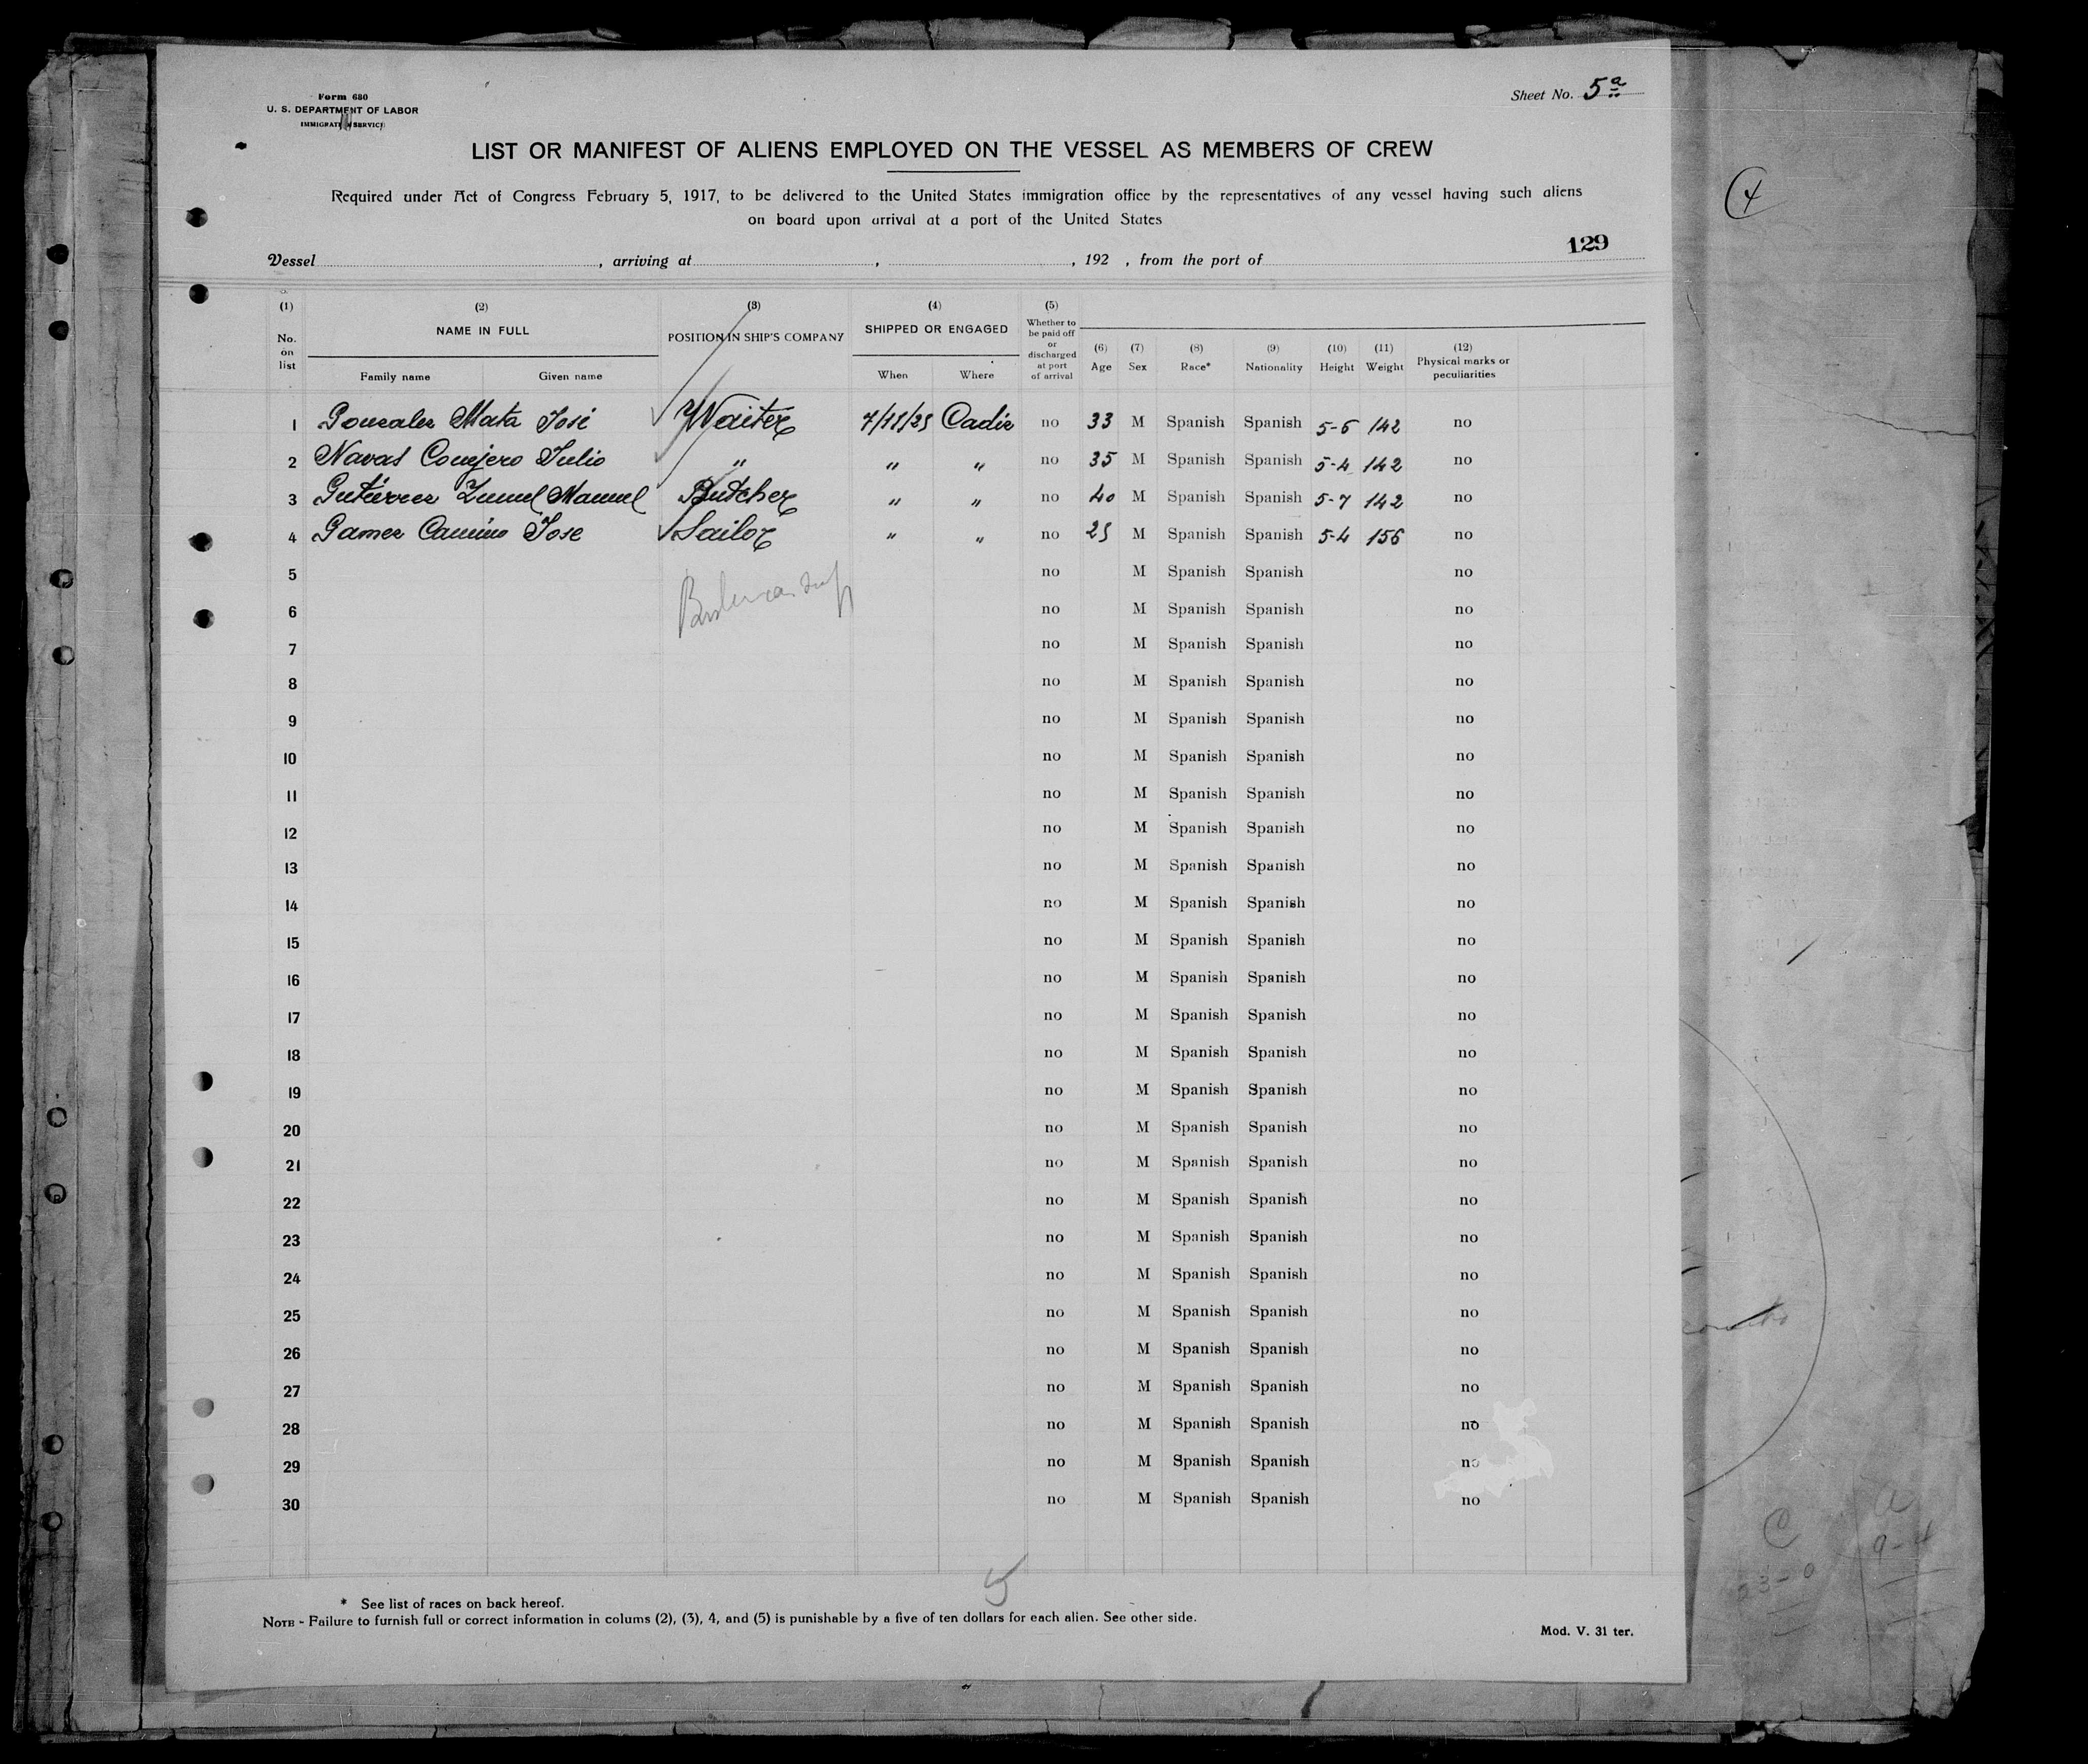 Form 680
U. S. DEPARTMENT OF LABOR
IMMIGRATION SERVICE
Sheet No. 5ª
LIST OR MANIFEST OF ALIENS EMPLOYED ON THE VESSEL AS MEMBERS OF CREW
Required under Act of Congress February 5, 1917, to be delivered to the United States immigration office by the representatives of any vessel having such aliens
on board upon arrival at a port of the United States
129
Vessel , arriving at , , 192 , from the port of
(1) No. on list (2) NAME IN FULL Family name Given name (3) POSITION IN SHIP'S COMPANY (4) SHIPPED OR ENGAGED When Where (5) Whether to be paid off or discharged at port of arrival (6) Age (7) Sex (8) Race* (9) Nationality (10) Height (11) Weight (12) Physical marks or peculiarities
1 Gonzalez Mata José Waiter 7/11/25 Cadiz no 33 M Spanish Spanish 5-6 142 no
2 Navas Conejero Julio " " " no 35 M Spanish Spanish 5-4 142 no
3 Gutierrez Manuel Butcher " " no 40 M Spanish Spanish 5-7 142 no
4 Gamez Camino Jose Sailor " " no 25 M Spanish Spanish 5-4 156 no
5 no M Spanish Spanish no
6 no M Spanish Spanish no
7 no M Spanish Spanish no
8 no M Spanish Spanish no
9 no M Spanish Spanish no
10 no M Spanish Spanish no
11 no M Spanish Spanish no
12 no M Spanish Spanish no
13 no M Spanish Spanish no
14 no M Spanish Spanish no
15 no M Spanish Spanish no
16 no M Spanish Spanish no
17 no M Spanish Spanish no
18 no M Spanish Spanish no
19 no M Spanish Spanish no
20 no M Spanish Spanish no
21 no M Spanish Spanish no
22 no M Spanish Spanish no
23 no M Spanish Spanish no
24 no M Spanish Spanish no
25 no M Spanish Spanish no
26 no M Spanish Spanish no
27 no M Spanish Spanish no
28 no M Spanish Spanish no
29 no M Spanish Spanish no
30 no M Spanish Spanish no
5
* See list of races on back hereof.
NOTE - Failure to furnish full or correct information in colums (2), (3), 4, and (5) is punishable by a five of ten dollars for each alien. See other side.
Mod. V. 31 ter.